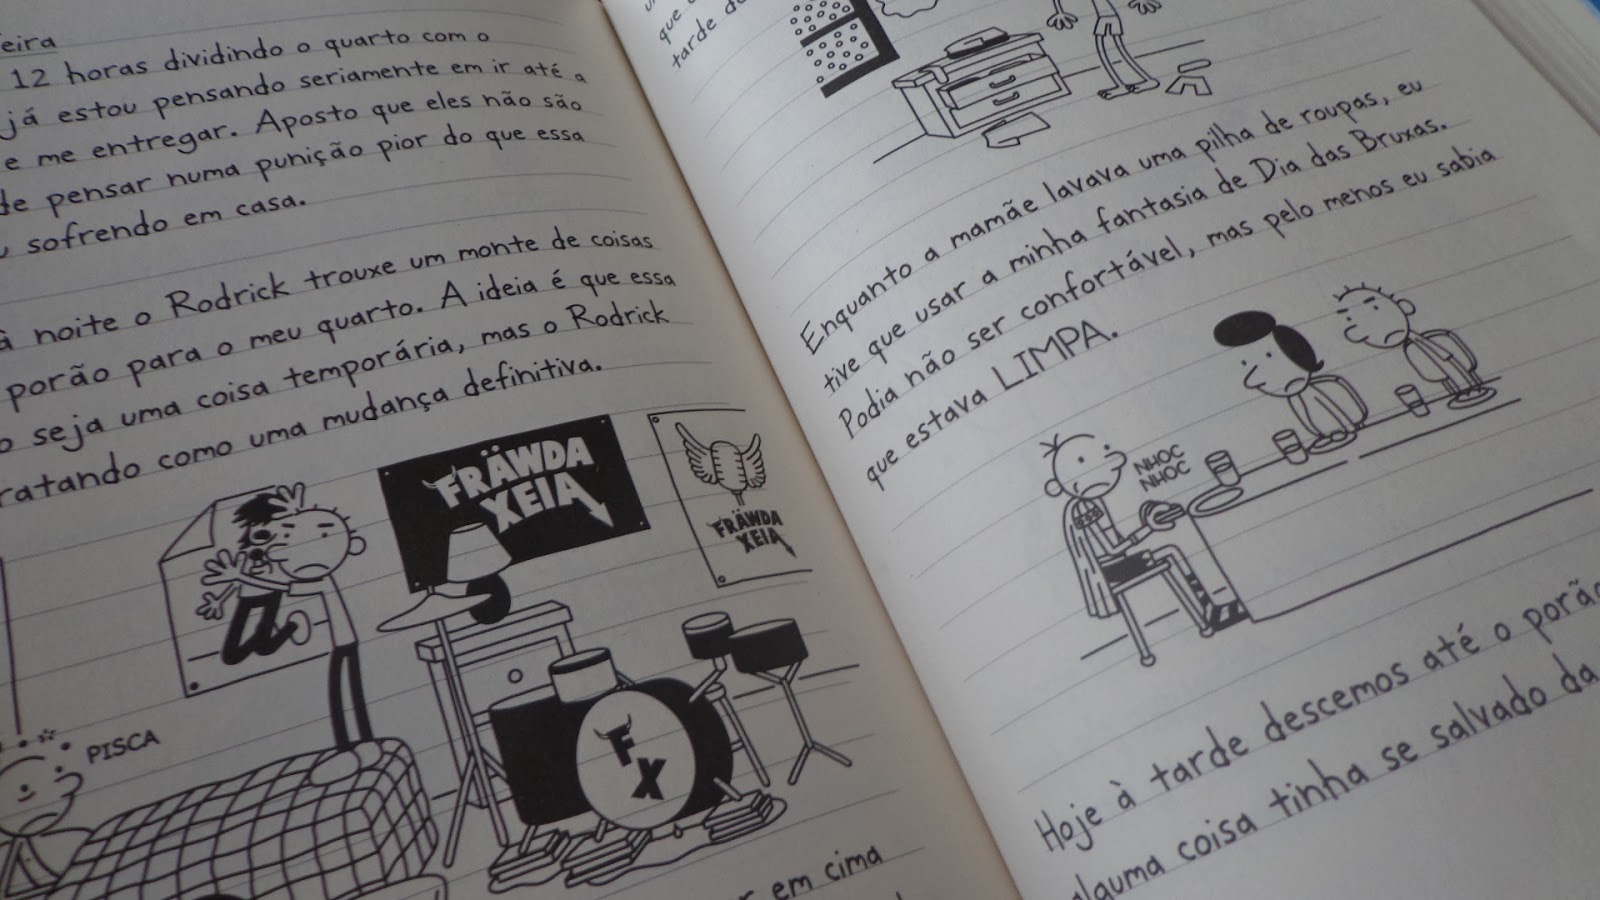 eira
12 horas dividindo o quarto com o
já estou pensando seriamente em ir até a
e me entregar. Aposto que eles não são
de pensar numa punição pior do que essa
sofrendo em casa.
à noite o Rodrick trouxe um monte de coisas
porão para o meu quarto. A ideia é que essa
o seja uma coisa temporária, mas o Rodrick
ratando como uma mudança definitiva.
FRÄWDA
XEIA
FRÄWDA
XEIA
PISCA
F
X
r em cima
que
tarde d
Enquanto a mamãe lavava uma pilha de roupas, eu
tive que usar a minha fantasia de Dia das Bruxas.
Podia não ser confortável, mas pelo menos eu sabia
que estava LIMPA.
NHOC
NHOC
Hoje à tarde descemos até o porão
alguma coisa tinha se salvado da